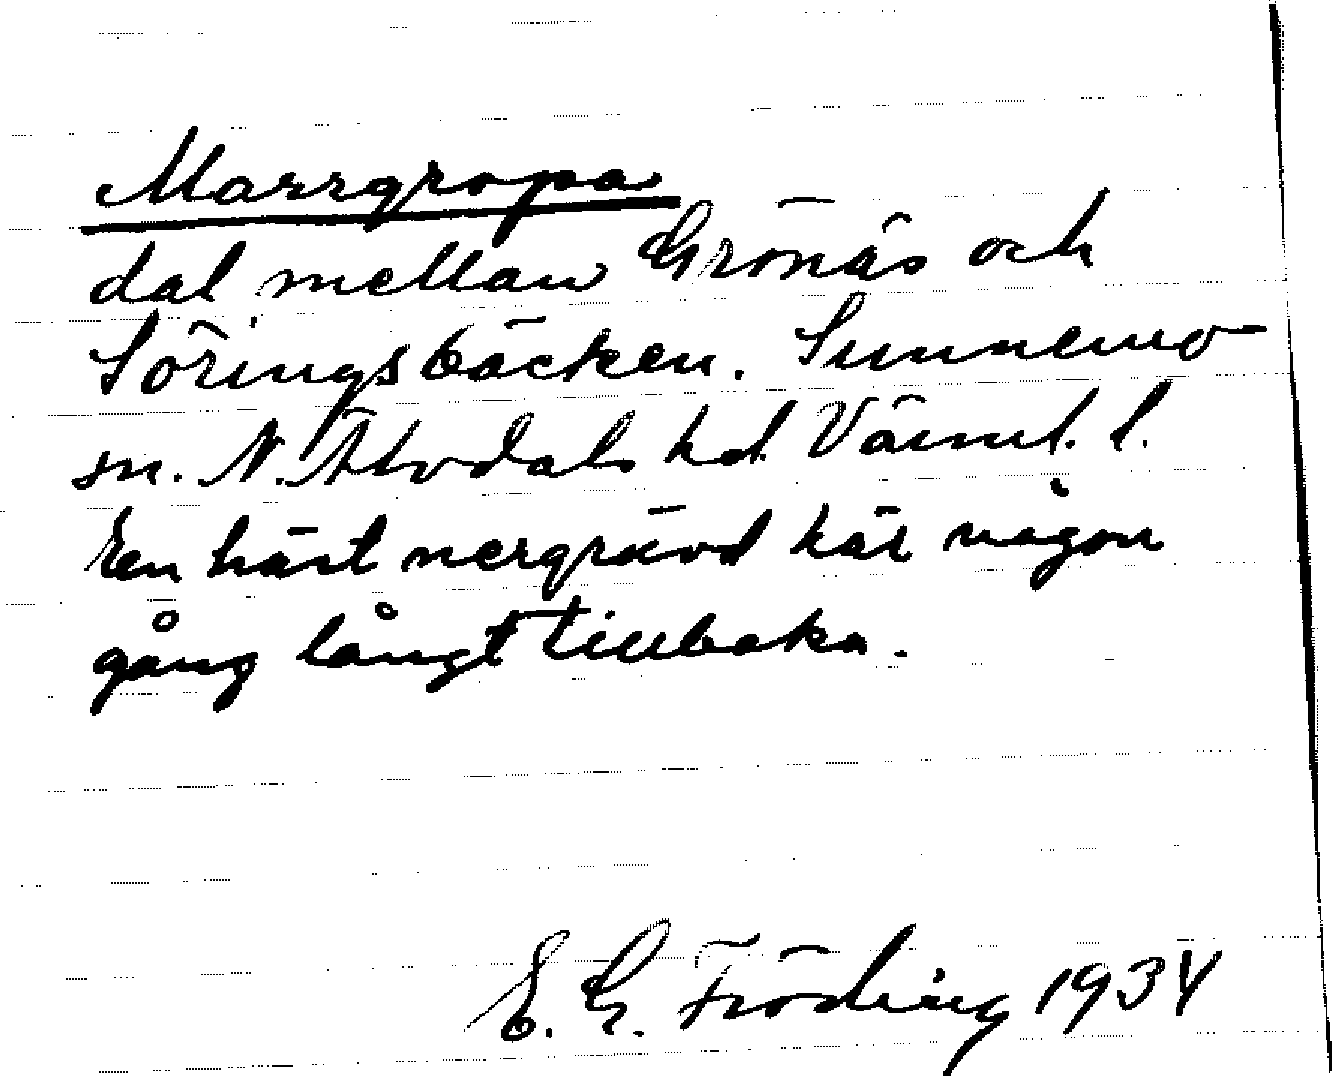 Marrgropa
dal mellan Grönäs och
Söringsbäcken. Sunnemo
sn. N. Älvdals hd. Värml. l.
En häst nergrävd här någon
gång långt tillbaka.
E. G. Fröding 1934